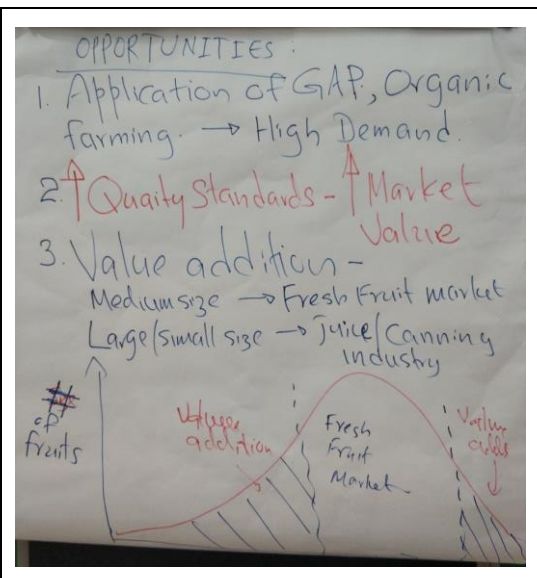 OPPORTUNITIES :
1. Application of GAP, Organic
farming. → High Demand.
2. ↑ Quaity Standards - ↑ Market
Value
3. Value addition -
Medium size → Fresh Fruit market
Large/small size → Juice/Canning
industry
#
of
fruits
Value
addition
Fresh
Fruit
Market
Value
adds